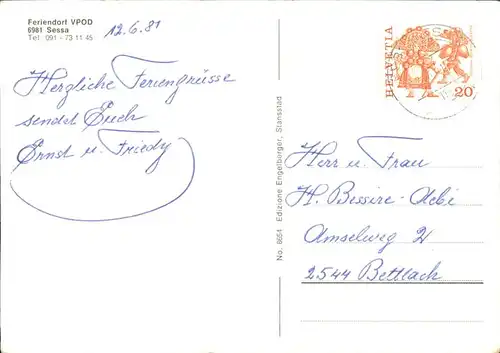 Feriendorf VPOD
6981 Sessa
Tel 091 - 73 11 45
12.6.81
Herzliche Feriengrüsse
sendet Euch
Ernst u. Friedy
No. 8654 Edizione Engelberger, Stansstad
HELVETIA
20
Herr u. Frau
H. Bessire-Aebi
Amselweg 2
2544 Bettlach